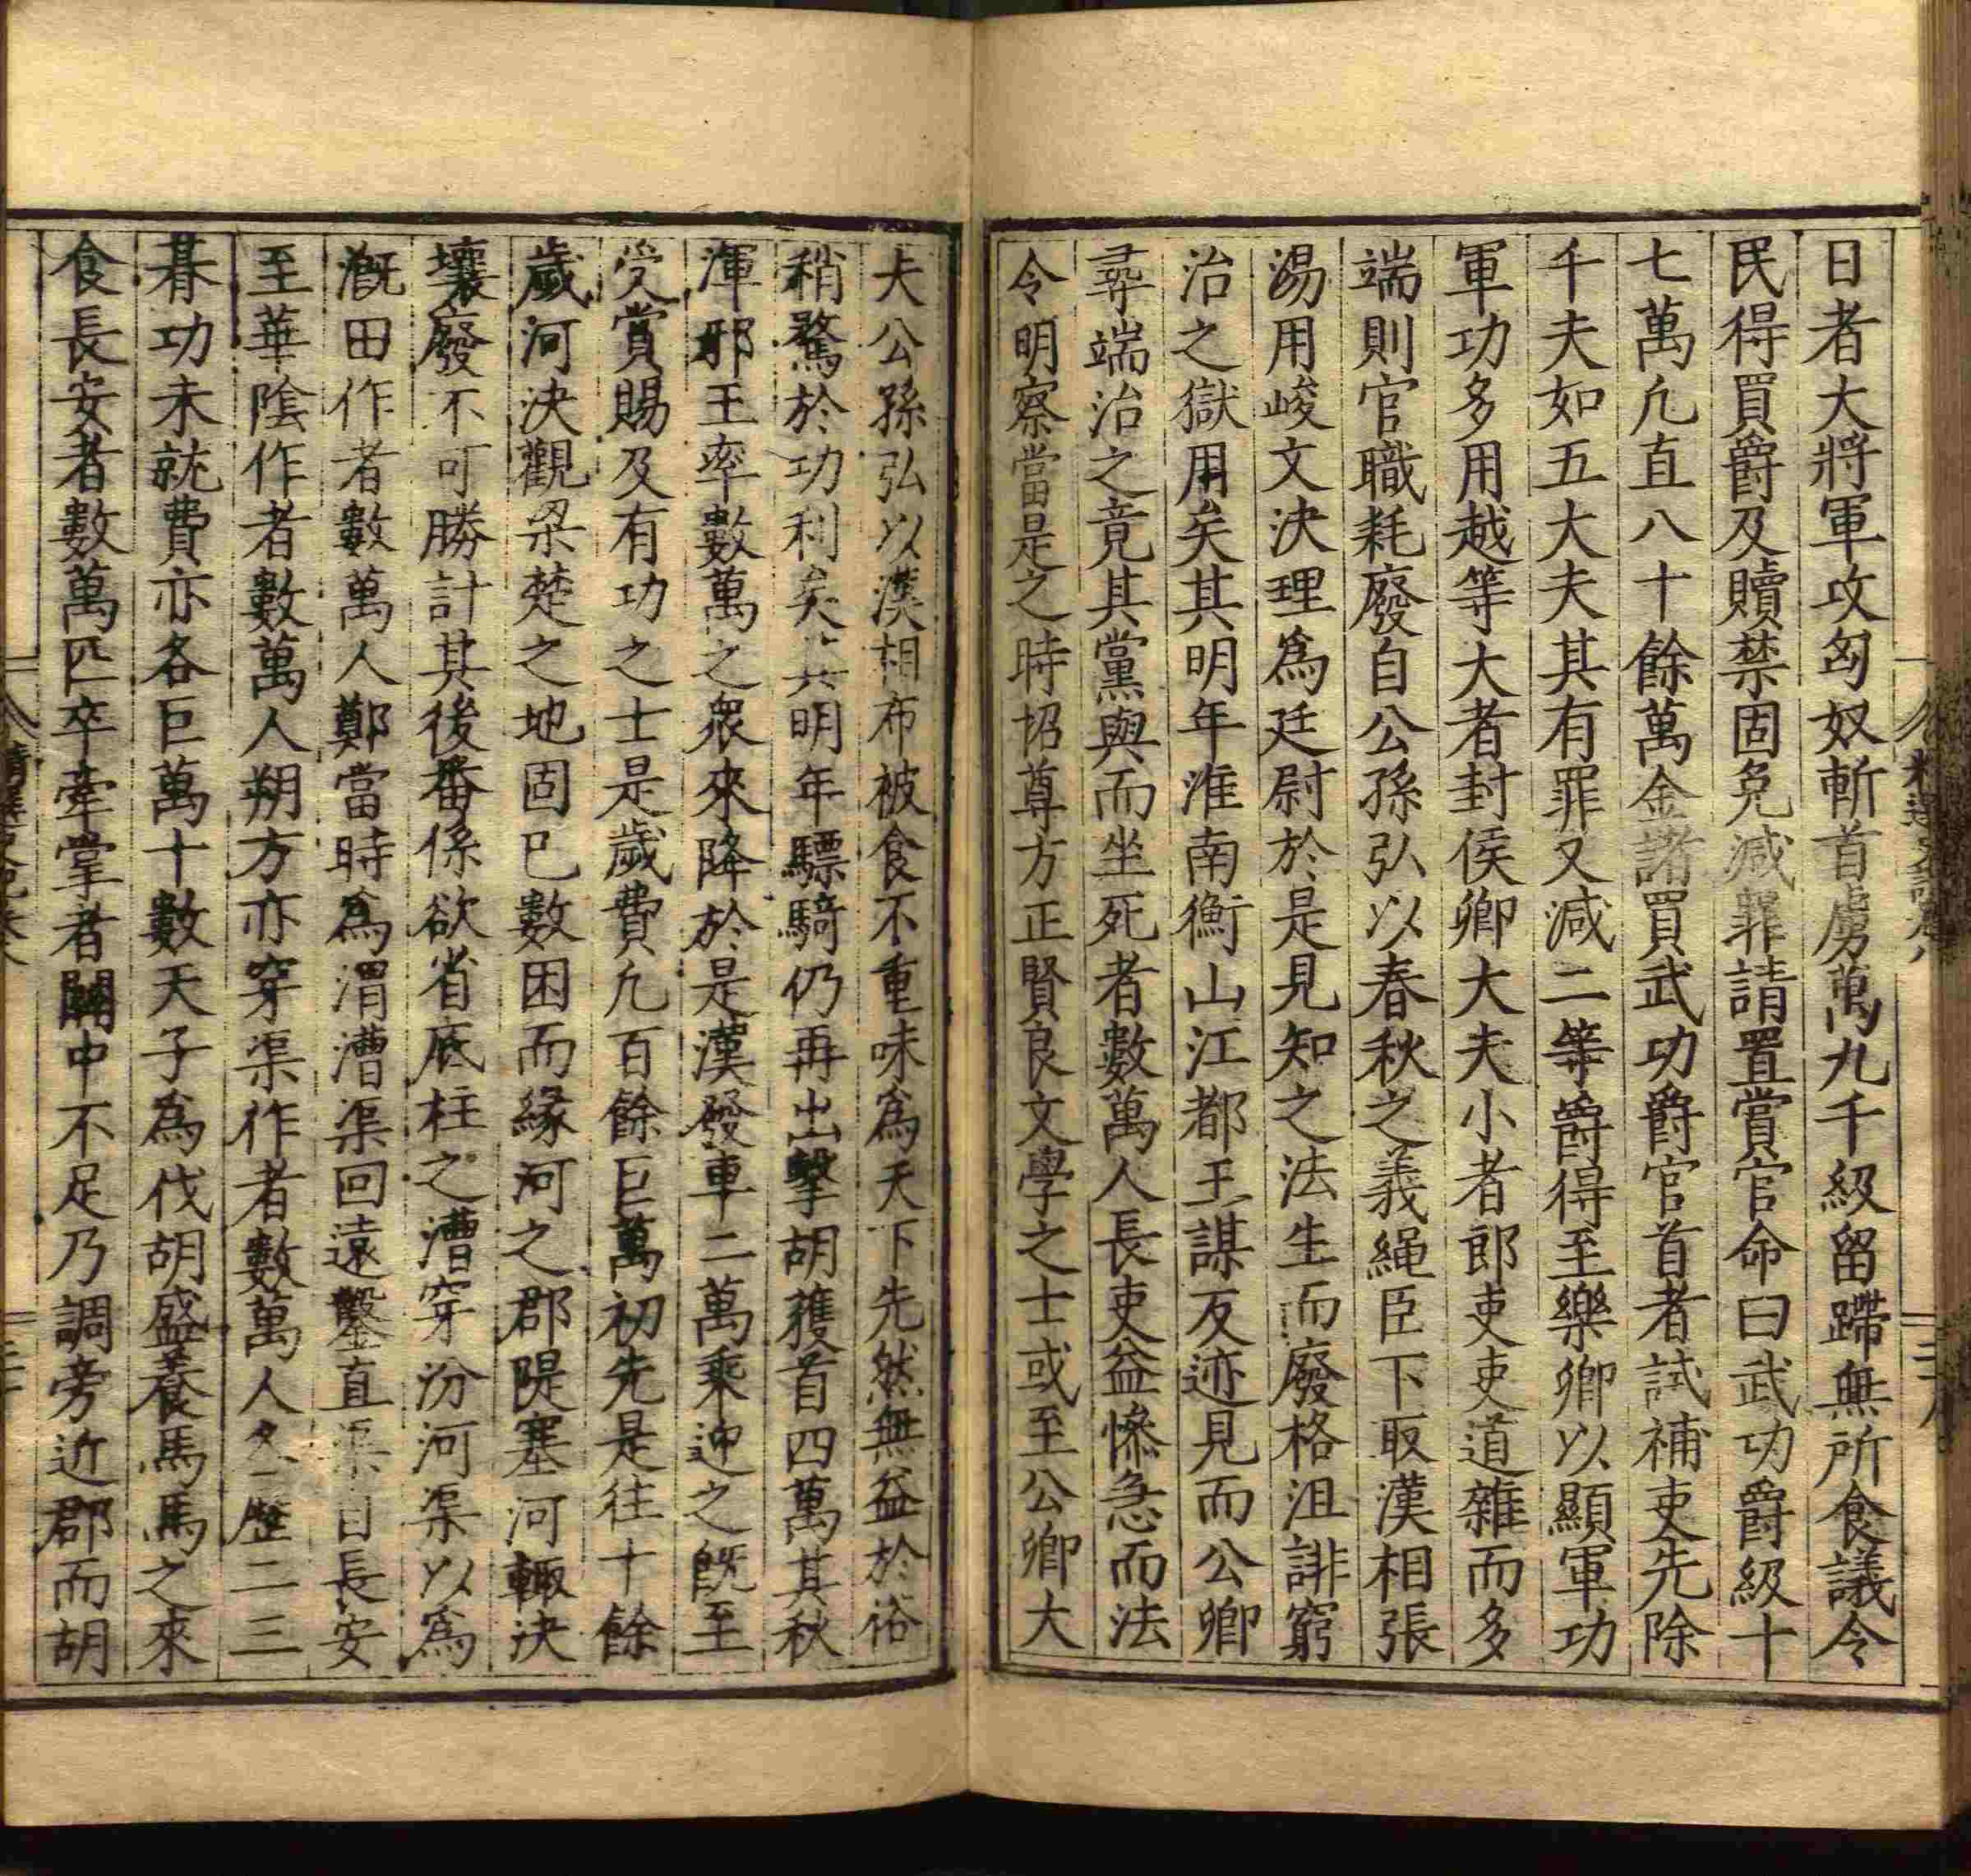 日者大將軍攻匈奴斬首虜萬九千級留蹛無所食議令
民得買爵及贖禁固免減罪請置賞官命曰武功爵級十
七萬凡直八十餘萬金諸買武功爵官首者試補吏先除
千夫如五大夫其有罪又減二等爵得至樂卿以顯軍功
軍功多用越等大者封侯卿大夫小者郎吏吏道雜而多
端則官職耗廢自公孫弘以春秋之義繩臣下取漢相張
湯用峻文決理為廷尉於是見知之法生而廢格沮誹窮
治之獄用矣其明年淮南衡山江都王謀反迹見而公卿
尋端治之竟其黨與而坐死者數萬人長吏益慘急而法
令明察當是之時招尊方正賢良文學之士或至公卿大
夫公孫弘以漢相布被食不重味為天下先然無益於俗
稍騖於功利矣其明年驃騎仍再出擊胡獲首四萬其秋
渾邪王率數萬之眾來降於是漢發車二萬乘迎之既至
受賞賜及有功之士是歲費凡百餘巨萬初先是往十餘
歲河決觀梁楚之地固已數困而緣河之郡隄塞河輒決
壞廢不可勝計其後番係欲省底柱之漕穿汾河渠以為
溉田作者數萬人鄭當時為渭漕渠回遠鑿直渠自長安
至華陰作者數萬人朔方亦穿渠作者數萬人各歷二三
朞功未就費亦各巨萬十數天子為伐胡盛養馬馬之來
食長安者數萬匹卒牽掌者關中不足乃調旁近郡而胡